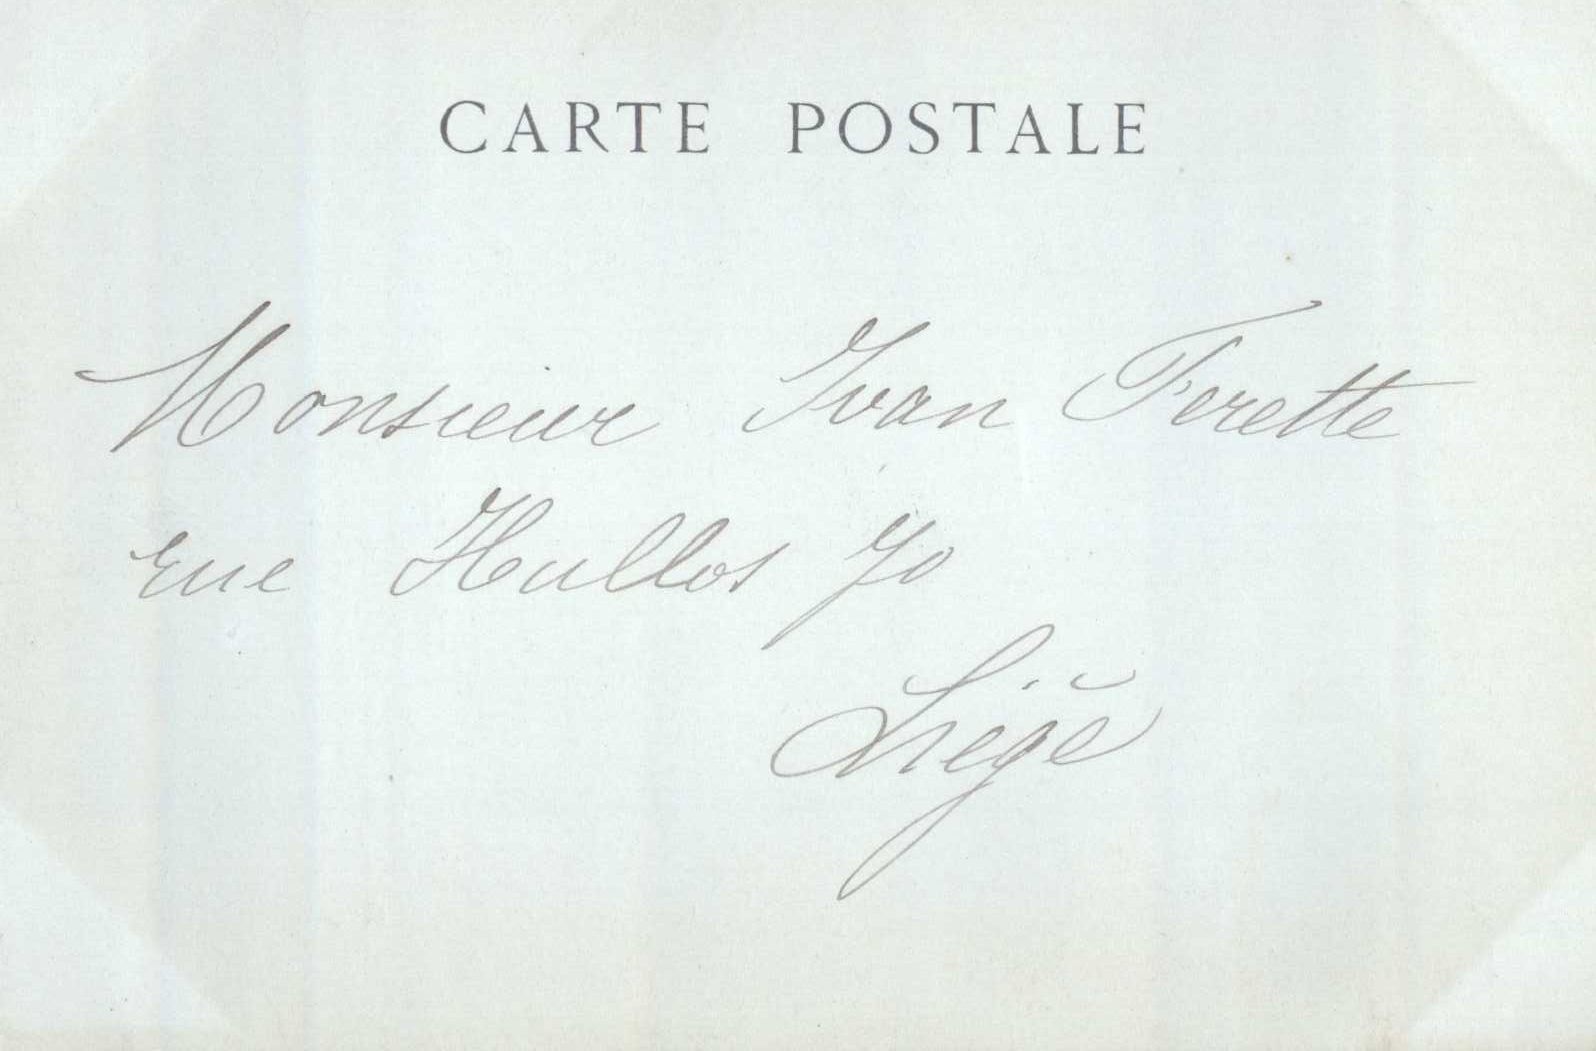 CARTE POSTALE
Monsieur Ivan Ferette
rue Hullos 70
Liége